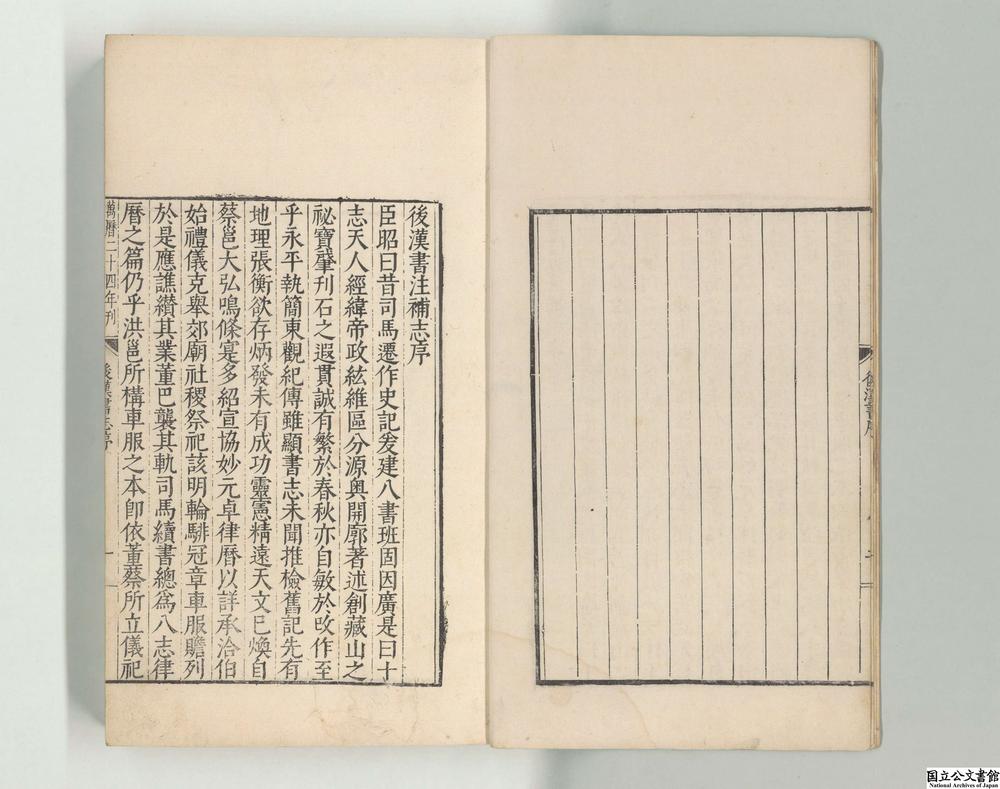 後漢書序
後漢書注補志序
臣昭曰昔司馬遷作史記爰建八書班固因廣是曰十
志天人經緯帝政紘維區分源奧開廓著述創藏山之
祕寶肇刊石之遐貫誠有繁於春秋亦自敏於改作至
乎永平執簡東觀紀傳雖顯書志未聞推檢舊記先有
地理張衡欲存炳發未有成功靈憲精遠天文已煥自
蔡邕大弘鳴條寔多紹宣協妙元卓律曆以詳承洽伯
始禮儀克舉郊廟社稷祭祀該明輪騑冠章車服贍列
於是應譙纘其業董巴襲其軌司馬續書總爲八志律
曆之篇仍乎洪邕所構車服之本卽依董蔡所立儀祀
萬曆二十四年刊
後漢書志序
一
国立公文書館
National Archives of Japan